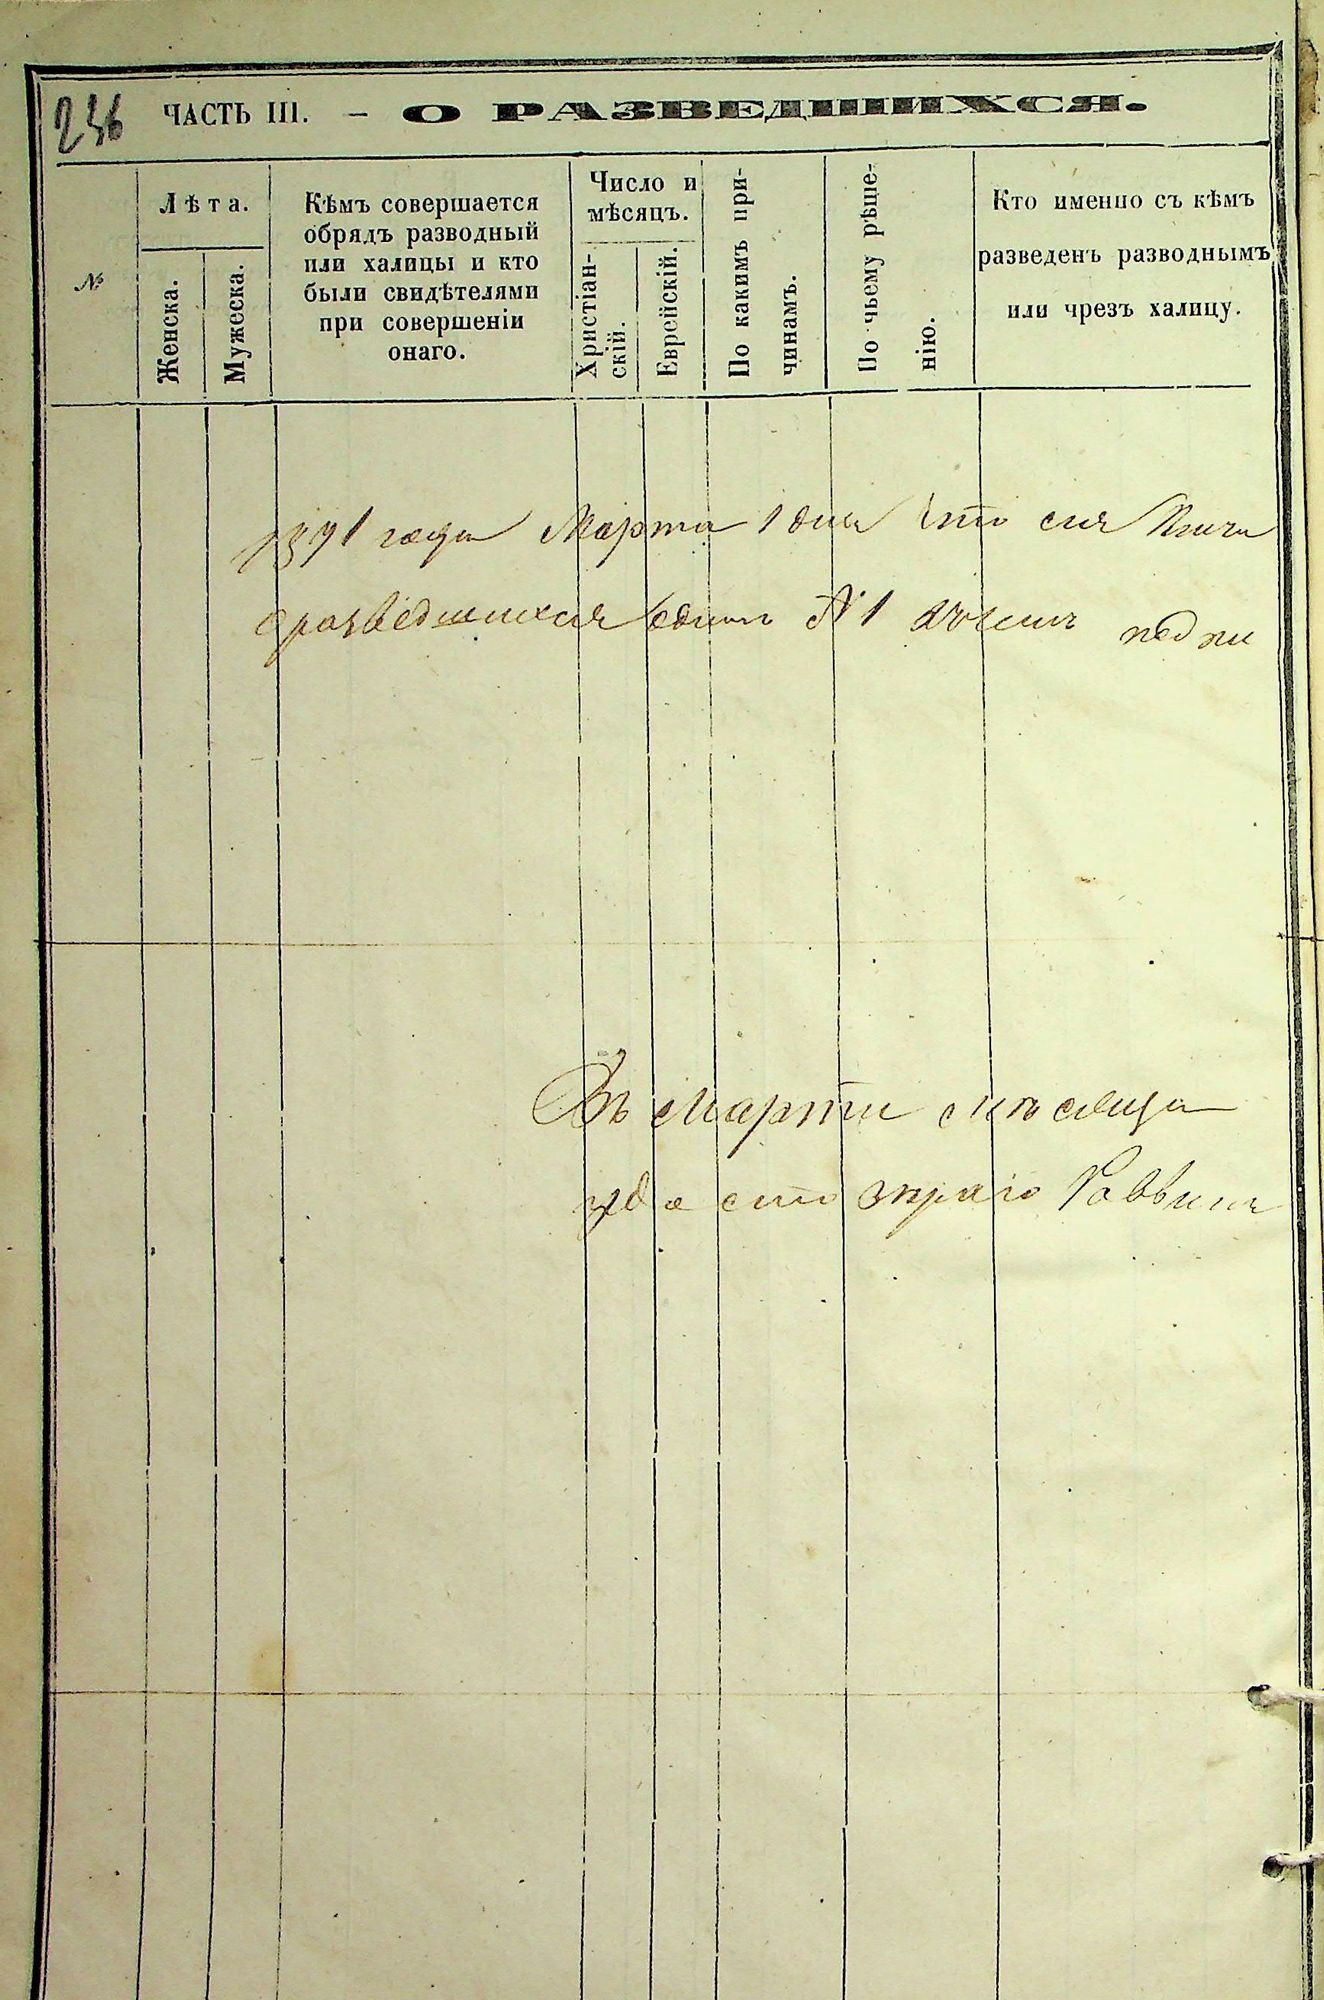 236 ЧАСТЬ III. — О РАЗВЕДШИХСЯ.
№
Лѣта.
Женска.
Мужеска.
Кѣмъ совершается
обрядъ разводный
или халицы и кто
были свидѣтелями
при совершеніи
онаго.
Число и
мѣсяцъ.
Христіан-
скій.
Еврейскій.
По какимъ при-
чинамъ.
По чьему рѣше-
нію.
Кто именно съ кѣмъ
разведенъ разводнымъ
или чрезъ халицу.
года Марта 1 дня что сія
о разведшихся № 1
Въ Марти мѣсяца
Раввин